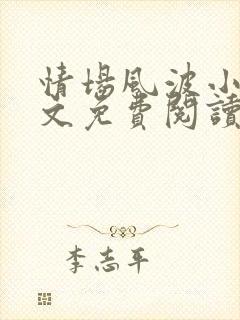 情場風波小
文免費閱讀
李志平